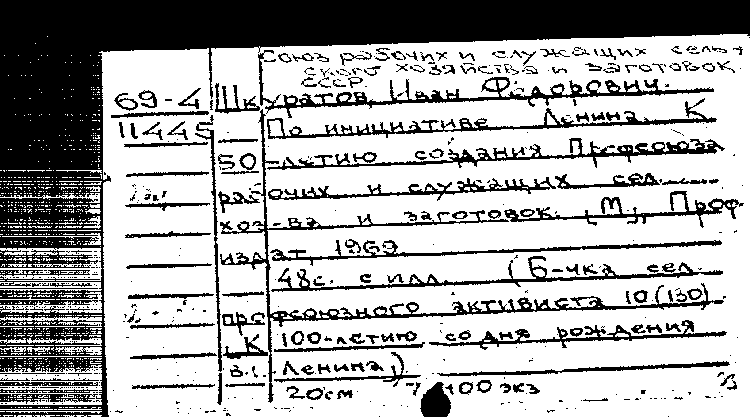 Союз рабочих и служащих сель-
ского хозяйства и заготовок
СССР
69-4 Шкуратов, Иван Федорович.
11445 По инициативе Ленина. К
50-летию создания Профсоюза
рабочих и служащих сел.
хоз-ва и заготовок. [М], Проф-
издат, 1969.
48с. с илл. (Б-чка сел.
профсоюзного активиста 10(130).
К 100-летию со дня рождения
В.И. Ленина)
20см 100 экз